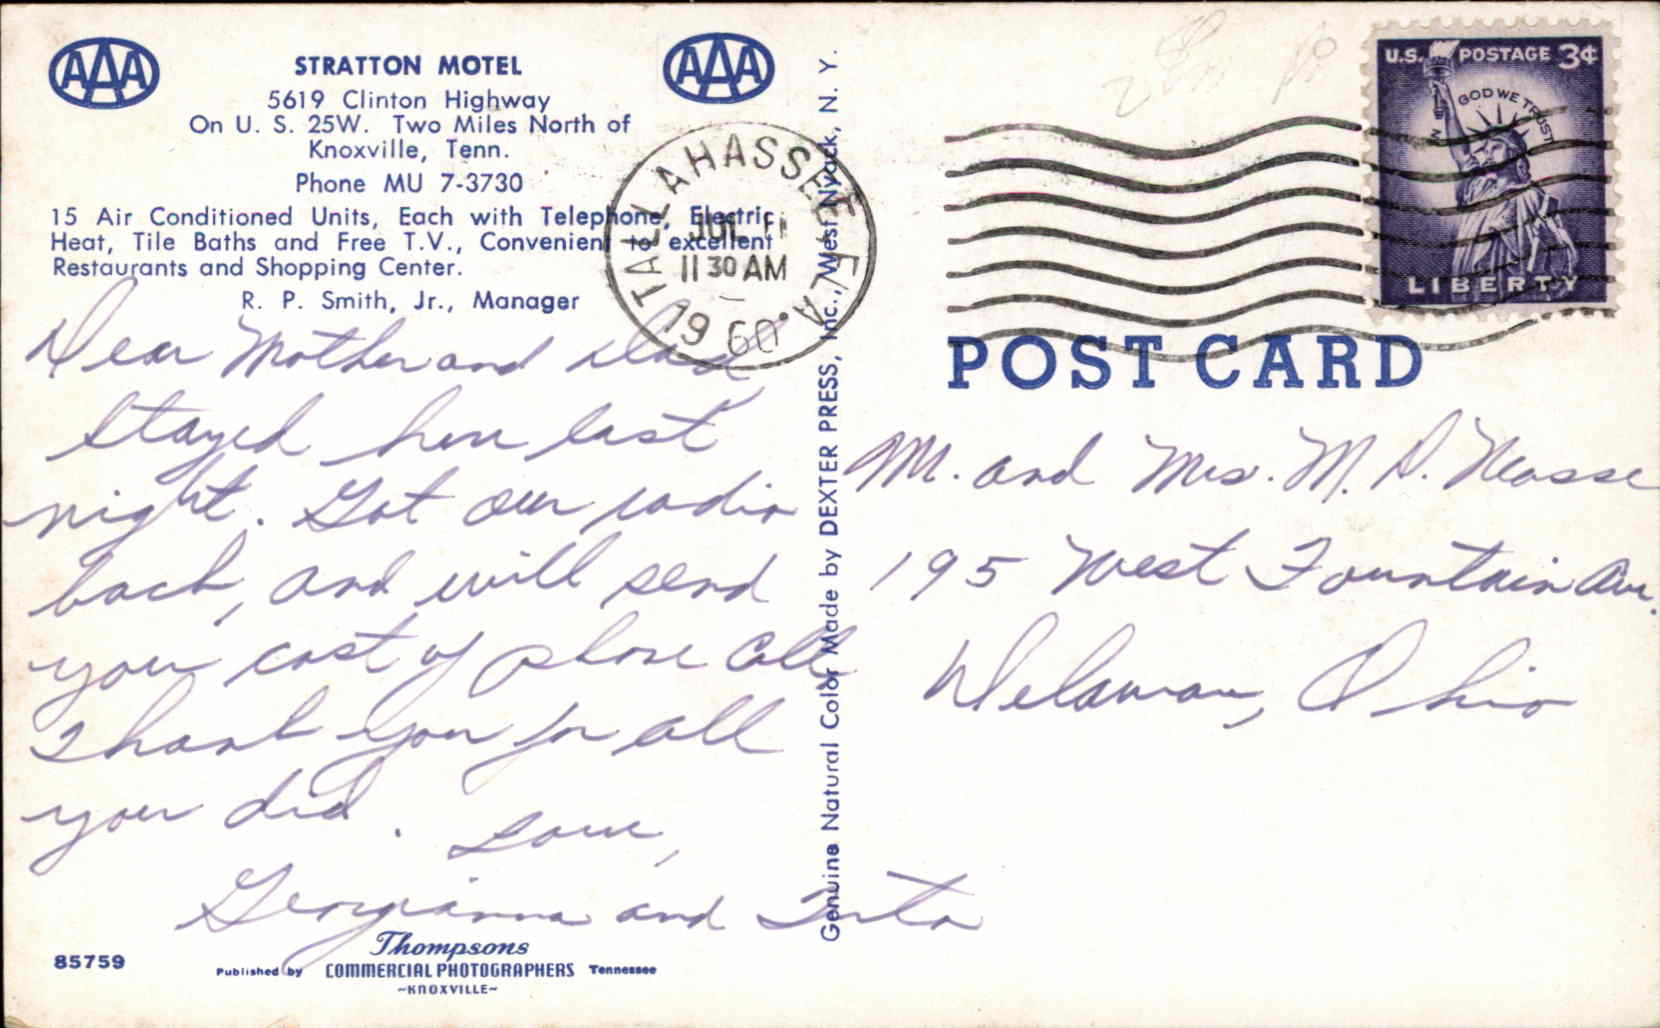 AAA
STRATTON MOTEL
AAA
5619 Clinton Highway
On U. S. 25W. Two Miles North of
Knoxville, Tenn.
Phone MU 7-3730
15 Air Conditioned Units, Each with Telephone, Electric
Heat, Tile Baths and Free T.V., Convenient to excellent
Restaurants and Shopping Center.
R. P. Smith, Jr., Manager
Dear Mother and Dad,
Stayed here last
night. Got our radio
back, and will send
you cost of phone call
Thank you for all
you did.
Love,
Georgianna and
85759
Thompsons
Published by COMMERCIAL PHOTOGRAPHERS Tennessee
~KNOXVILLE~
Genuine Natural Color Made by DEXTER PRESS, Inc., West Nyack, N. Y.
TALLAHASSEE FLA
JUL
11 30 AM
1960
U.S. POSTAGE 3¢
IN GOD WE TRUST
LIBERTY
POST CARD
Mr. and Mrs. M. D.
195 West Fountain Ave.
Delaware, Ohio